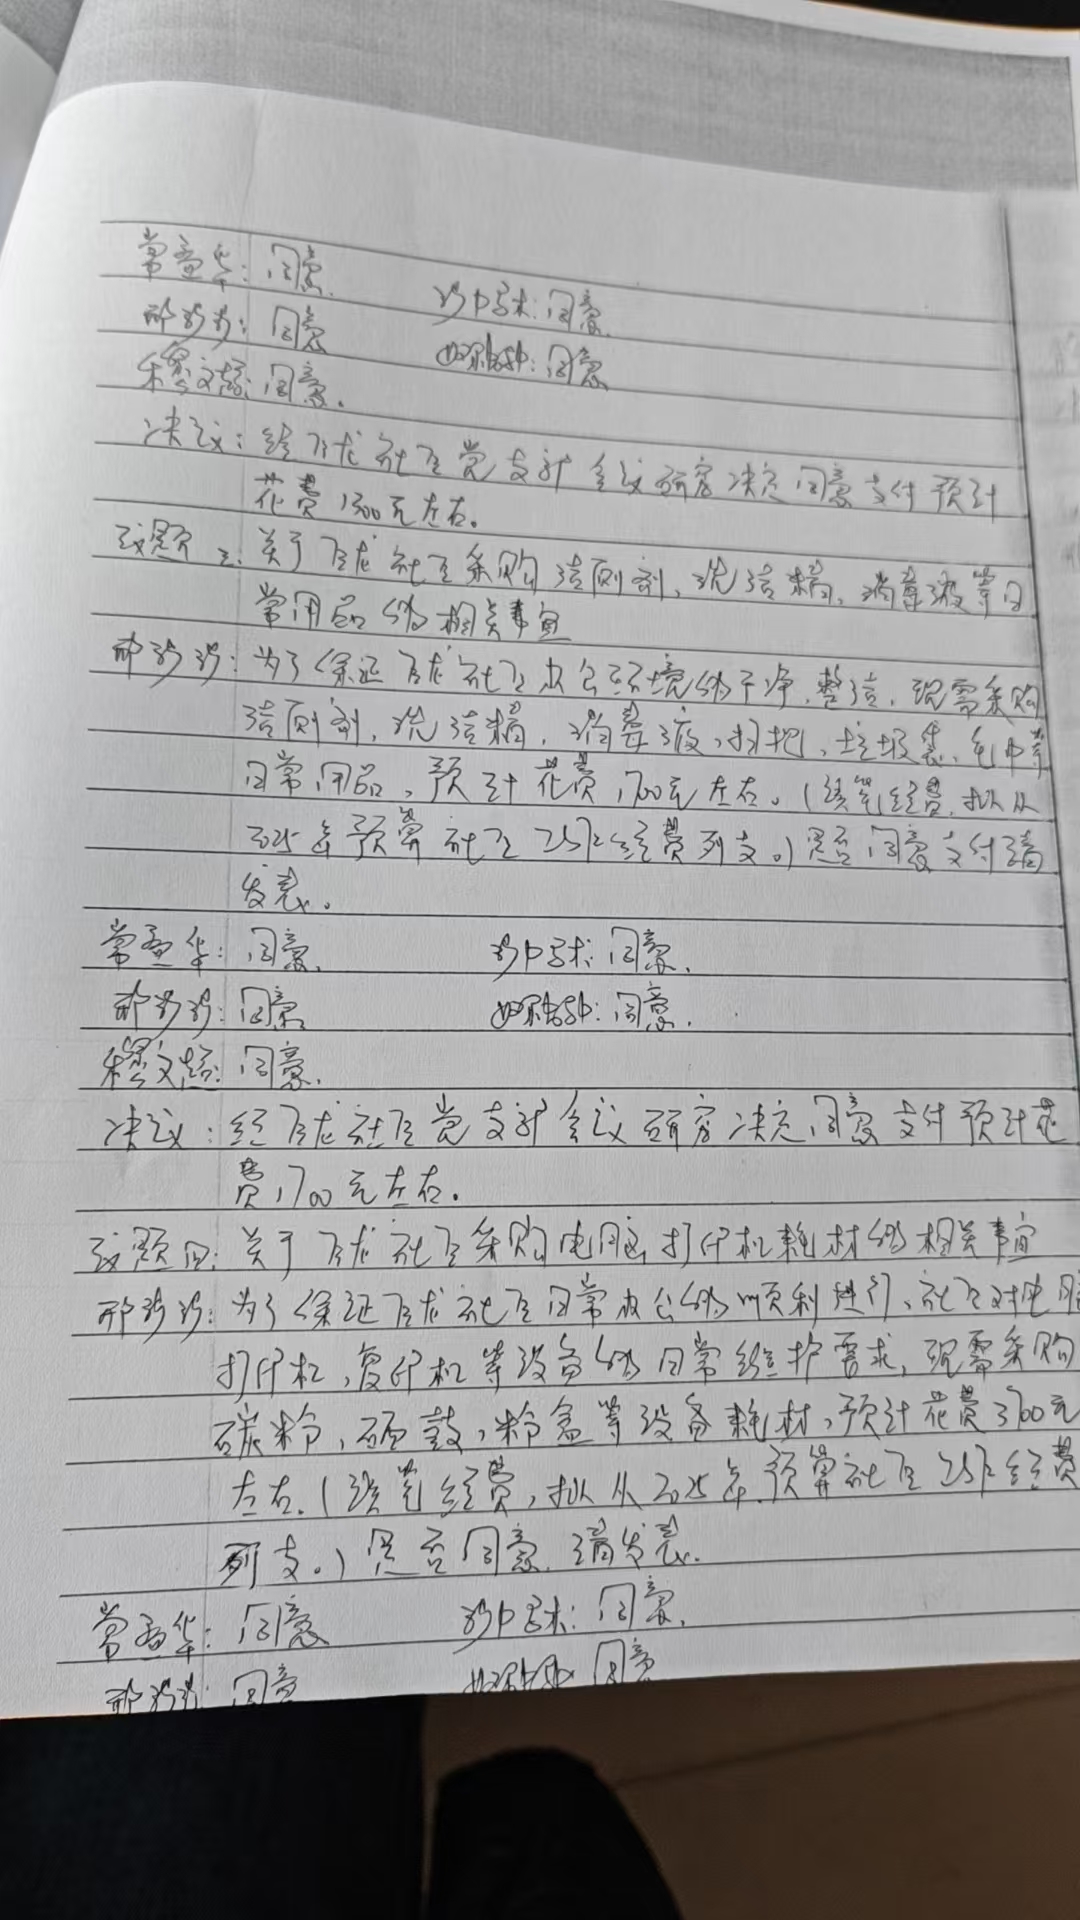 常盈华：同意
同意。
邢 ：同意
同意
穆文 ：同意。
决议：经 龙社区党支部会议研究决定同意支付预计
花费1300元左右。
议题三：关于 龙社区采购洁厕剂，洗洁精，消毒液等日
常用品的相关事宜
邢 ：为了保证 龙社区办公环境的干净，整洁，现需采购
洁厕剂，洗洁精，消毒液，扫把，垃圾袋，毛巾等
日常用品，预计花费1700元左右。（该笔经费，拟从
2025年预算社区 经费列支。）是否同意支付请
发表。
常盈华：同意。
同意。
邢 ：同意
同意。
穆文 ：同意。
决议：经 龙社区党支部会议研究决定同意支付预计花
费1700元左右。
议题四：关于 龙社区采购电脑，打印机耗材的相关事宜
邢 ：为了保证 龙社区日常办公的顺利进行，社区对电脑
打印机，复印机等设备的日常维护需求，现需采购
碳粉，硒鼓，粉盒等设备耗材，预计花费3700元
左右。（该笔经费，拟从2025年预算社区 经费
列支。）是否同意，请发表。
常盈华：同意
同意。
邢 ：同意
同意